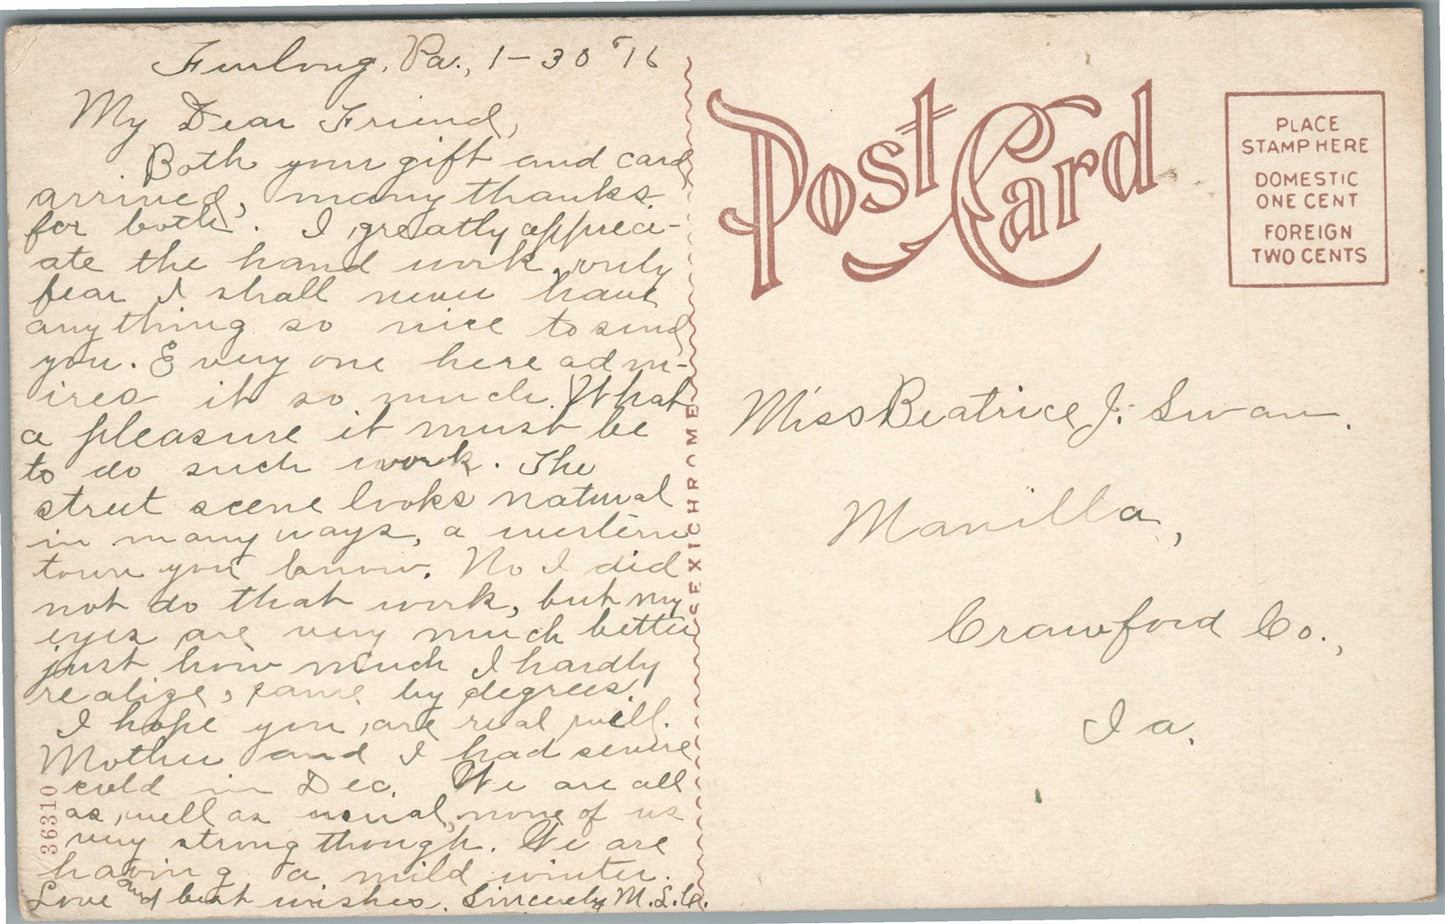 Furlong, Pa., 1-30 '16
My Dear Friend,
Both your gift and card
arrived, many thanks
for both. I greatly appreci-
ate the hand work, only
fear I shall never have
anything so nice to send
you. Every one here adm-
ires it so much. What
a pleasure it must be
to do such work. The
street scene looks natural
in many ways, a western
town you know. No I did
not do that work, but my
eyes are very much better
just how much I hardly
realize, came by degrees.
I hope you are real well.
Mother and I had severe
cold in Dec. We are all
as well as usual, none of us
very strong though. We are
having a mild winter.
Love and best wishes. Sincerely M.L.C.
36310
SEXICHROME
Post Card
PLACE
STAMP HERE
DOMESTIC
ONE CENT
FOREIGN
TWO CENTS
Miss Beatrice J. Swan.
Manilla,
Crawford Co.,
Ia.